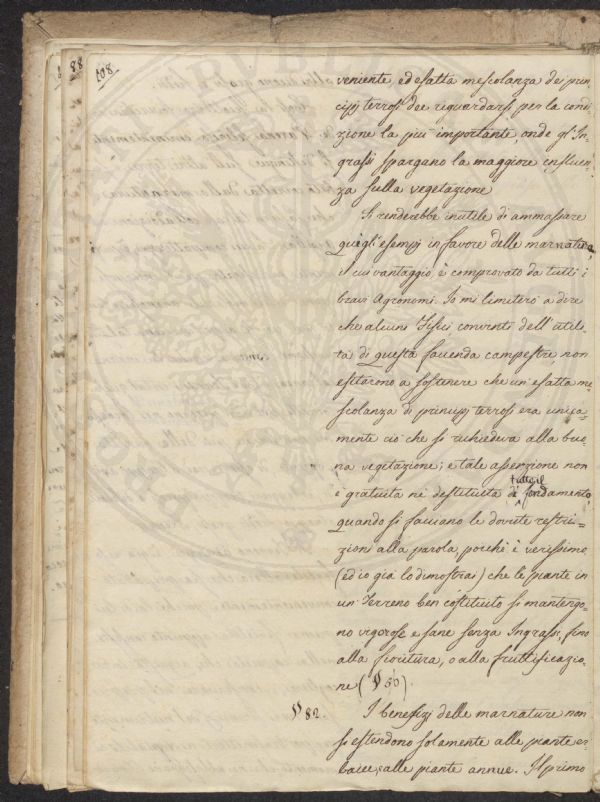 108.
88
veniente, ed esatta mescolanza dei prin-
cipj terrosi dee riguardarsi per la condi-
zione la più importante, onde gl'In-
grassi spargano la maggiore influen-
za sulla vegetazione
Si renderebbe inutile di ammassare
quegli esempi in favore delle marnature,
il cui vantaggio è comprovato da tutti i
bravi Agronomi. Io mi limiterò a dire
che alcuni Fisici convinti dell'utili-
tà di questa facenda campestre, non
esitarono a sostenere che un'esatta me-
scolanza di principj terrosi era unica-
mente ciò che si richiedeva alla buo-
na vegetazione; e tale asserzione non
è gratuita nè destituita di tutto il fondamento,
quando si facciano le dovute restri=
zioni alla parola, poichè è verissimo
(ed io già lo dimostrai) che le piante in
un Terreno ben costituito si mantengo-
no vigorose e sane senza Ingrassi, fino
alla fioritura, o alla fruttificazio-
ne (§ 56).
§ 82. I benefizj delle marnature non
si estendono solamente alle piante er-
bacee, e alle piante annue. Il primo